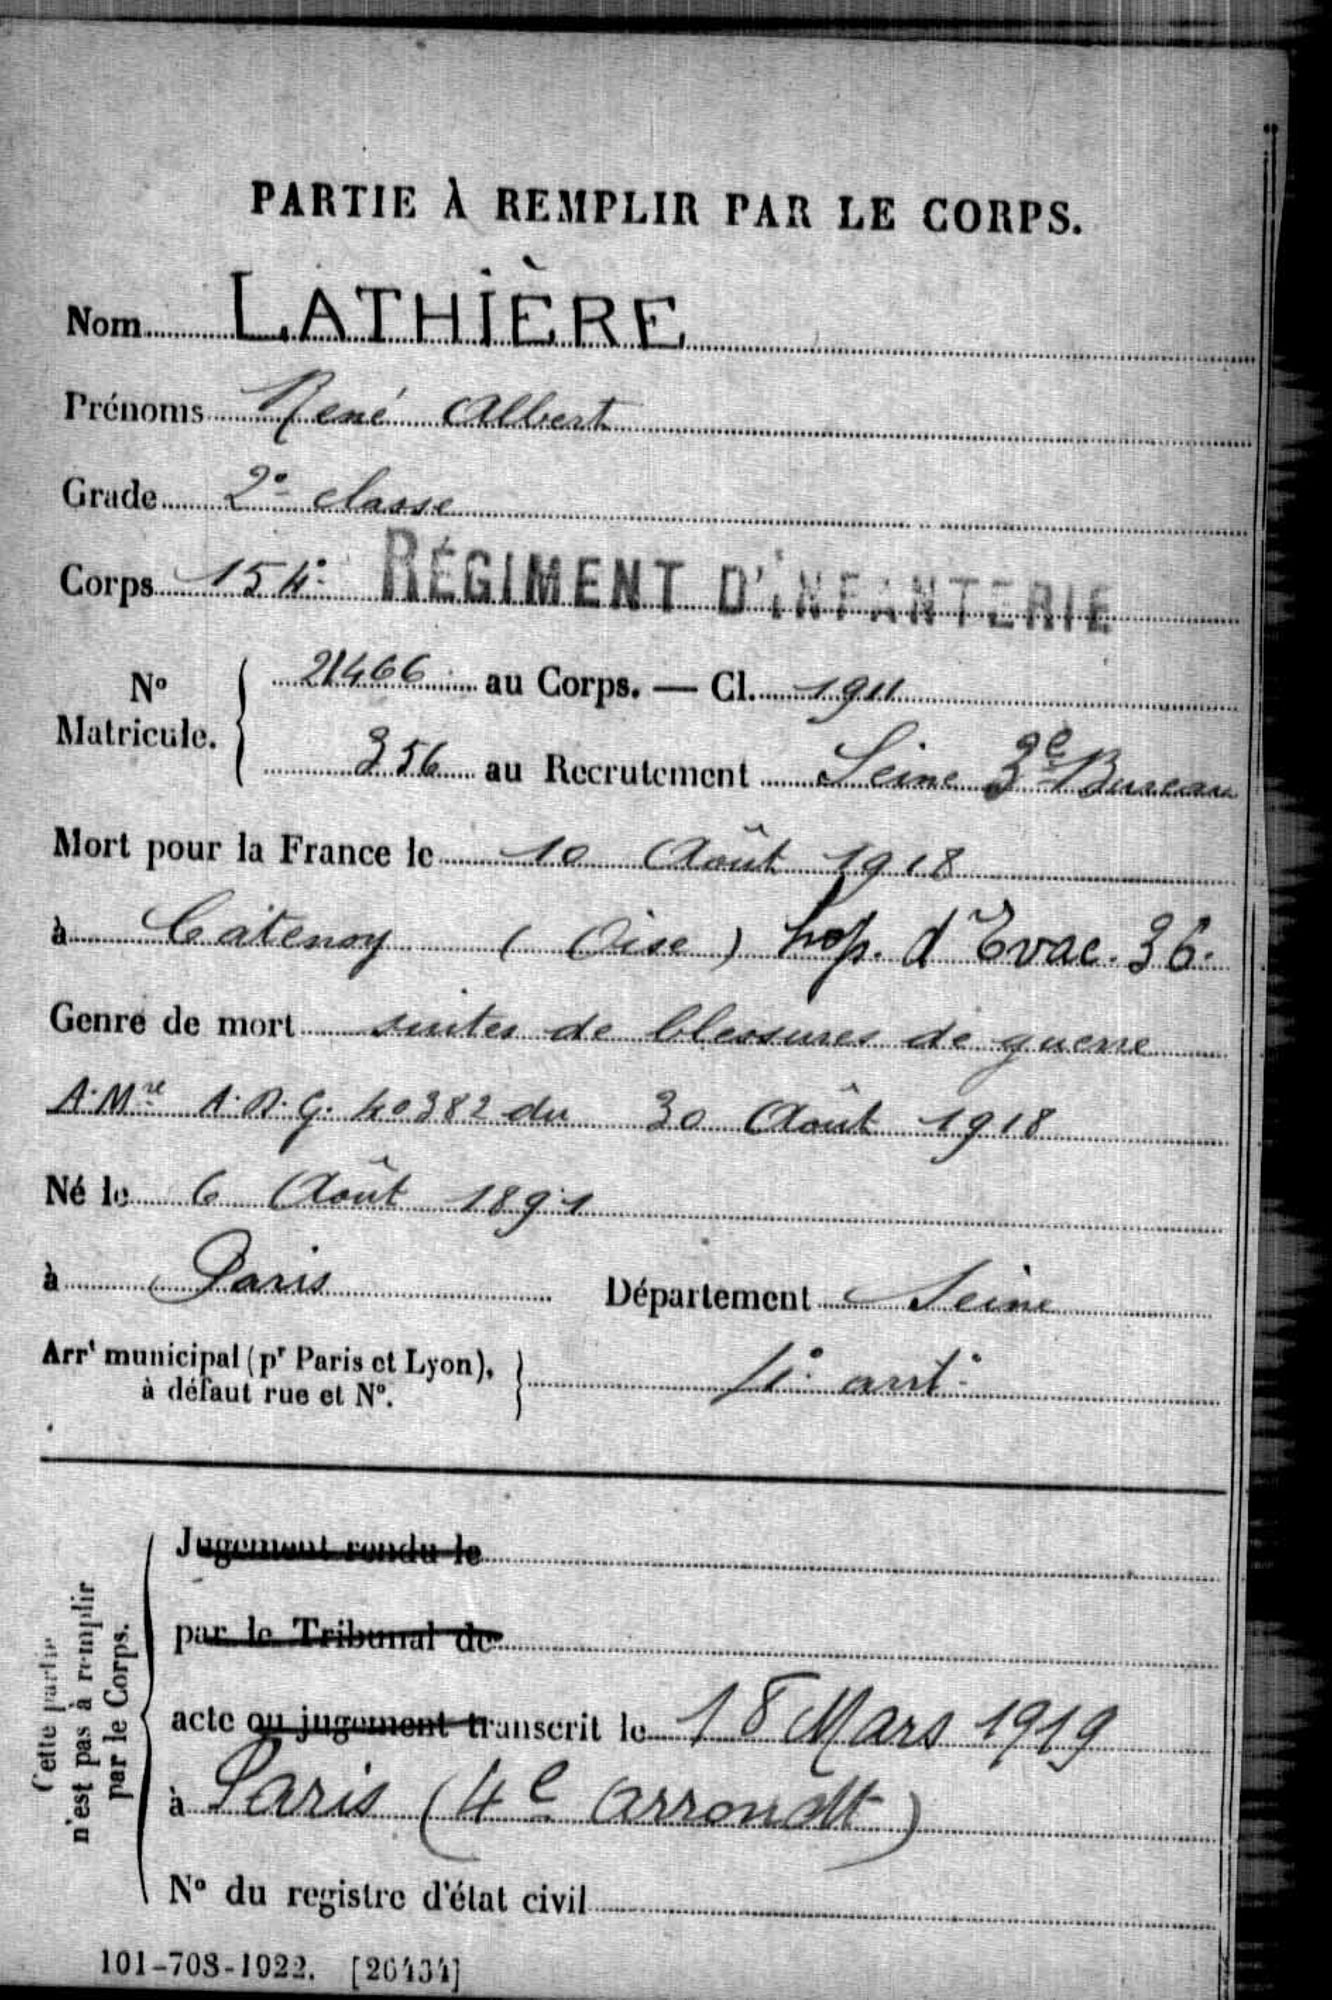 PARTIE À REMPLIR PAR LE CORPS.
Nom LATHIÈRE
Prénoms René Albert
Grade 2e classe
Corps 154e RÉGIMENT D'INFANTERIE
No Matricule. { 21466 au Corps. — Cl. 1911
356 au Recrutement Seine 3e Bureau
Mort pour la France le 10 Août 1918
à Catenoy (Oise) hop. d'Evac. 36.
Genre de mort suites de blessures de guerre
A. Mre 40382 du 30 Août 1918
Né le 6 Août 1891
à Paris Département Seine
Arrt municipal (pr Paris et Lyon), à défaut rue et No. } 4e arrt
Cette partie n'est pas à remplir par le Corps.
Jugement rendu le
par le Tribunal de
acte ou jugement transcrit le 18 Mars 1919
à Paris (4e arrondt)
No du registre d'état civil
101-708-1922. [26434]